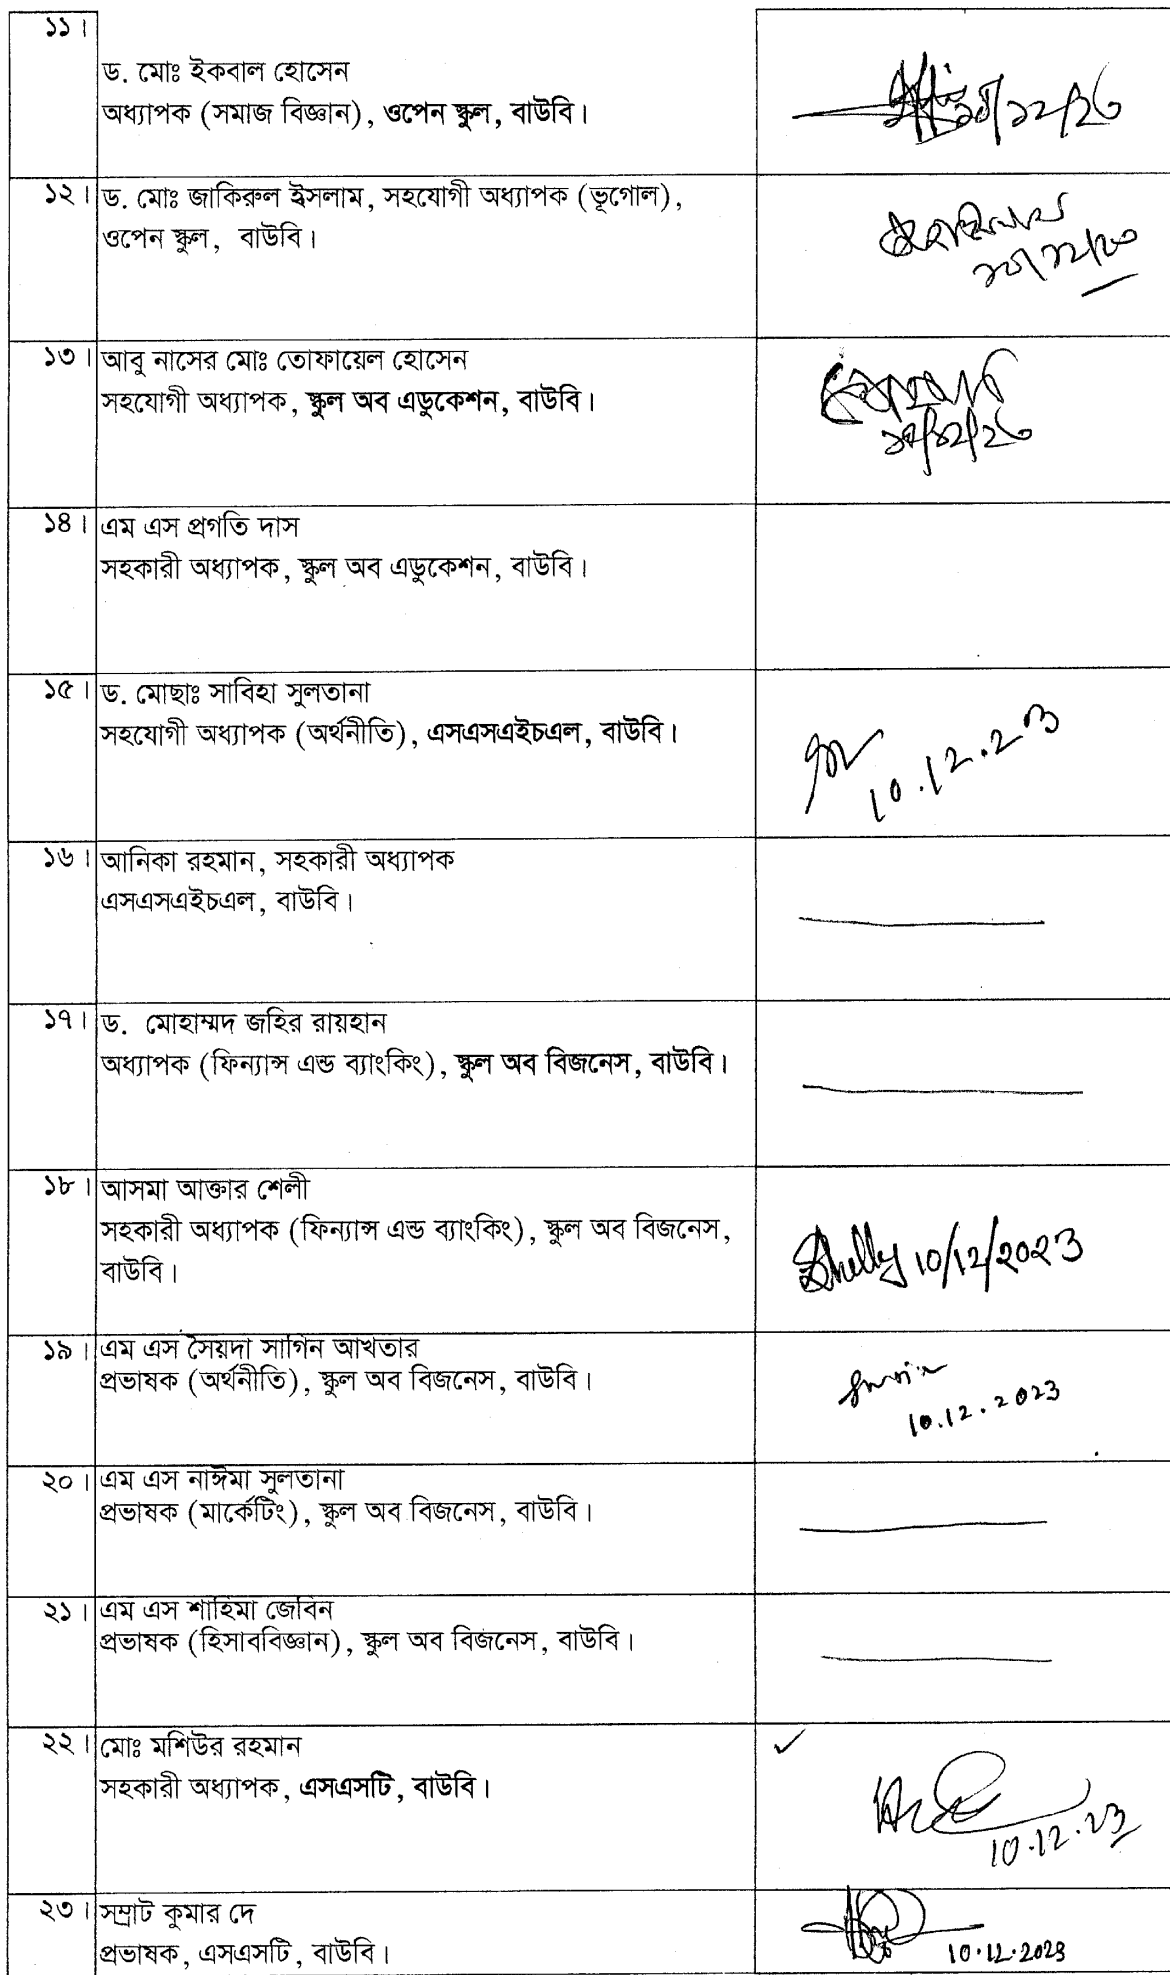 ১১।
ড. মোঃ ইকবাল হোসেন
অধ্যাপক (সমাজ বিজ্ঞান), ওপেন স্কুল, বাউবি।
১২। ড. মোঃ জাকিরুল ইসলাম, সহযোগী অধ্যাপক (ভূগোল),
ওপেন স্কুল, বাউবি।
১৩। আবু নাসের মোঃ তোফায়েল হোসেন
সহযোগী অধ্যাপক, স্কুল অব এডুকেশন, বাউবি।
১৪। এম এস প্রগতি দাস
সহকারী অধ্যাপক, স্কুল অব এডুকেশন, বাউবি।
১৫। ড. মোছাঃ সাবিহা সুলতানা
সহযোগী অধ্যাপক (অর্থনীতি), এসএসএইচএল, বাউবি।
10.12.23
১৬। আনিকা রহমান, সহকারী অধ্যাপক
এসএসএইচএল, বাউবি।
১৭। ড. মোহাম্মদ জহির রায়হান
অধ্যাপক (ফিন্যান্স এন্ড ব্যাংকিং), স্কুল অব বিজনেস, বাউবি।
১৮। আসমা আক্তার শেলী
সহকারী অধ্যাপক (ফিন্যান্স এন্ড ব্যাংকিং), স্কুল অব বিজনেস,
বাউবি।
Shelly 10/12/2023
১৯। এম এস সৈয়দা সাগিন আখতার
প্রভাষক (অর্থনীতি), স্কুল অব বিজনেস, বাউবি।
10.12.2023
২০। এম এস নাঈমা সুলতানা
প্রভাষক (মার্কেটিং), স্কুল অব বিজনেস, বাউবি।
২১। এম এস শাহিমা জেবিন
প্রভাষক (হিসাববিজ্ঞান), স্কুল অব বিজনেস, বাউবি।
২২। মোঃ মশিউর রহমান
সহকারী অধ্যাপক, এসএসটি, বাউবি।
10.12.23
২৩। সম্রাট কুমার দে
প্রভাষক, এসএসটি, বাউবি।
10.12.2023